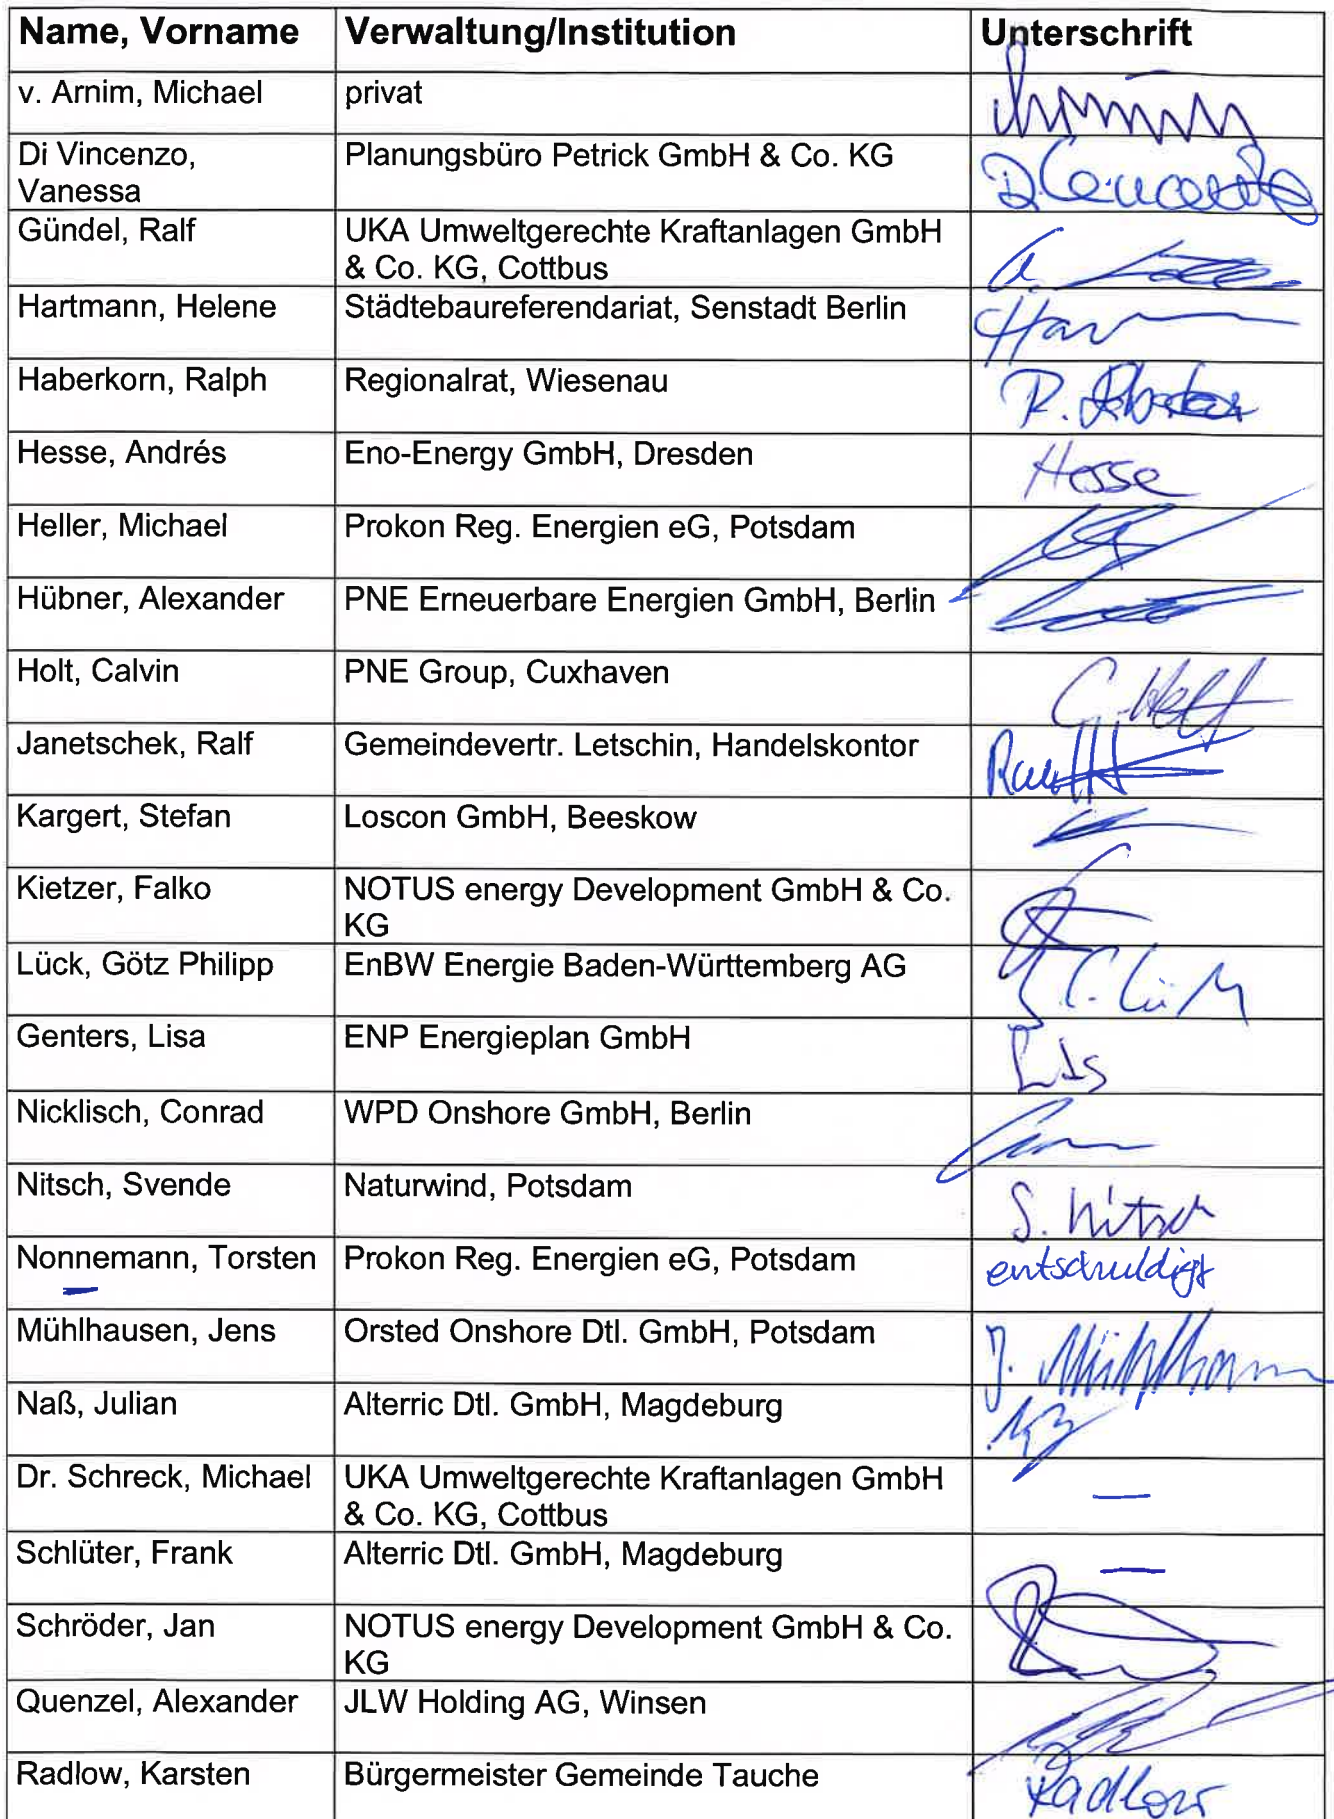 Name, Vorname Verwaltung/Institution Unterschrift
v. Arnim, Michael privat
Di Vincenzo, Planungsbüro Petrick GmbH & Co. KG
Vanessa
Gündel, Ralf UKA Umweltgerechte Kraftanlagen GmbH
& Co. KG, Cottbus
Hartmann, Helene Städtebaureferendariat, Senstadt Berlin
Haberkorn, Ralph Regionalrat, Wiesenau
Hesse, Andrés Eno-Energy GmbH, Dresden Hesse
Heller, Michael Prokon Reg. Energien eG, Potsdam
Hübner, Alexander PNE Erneuerbare Energien GmbH, Berlin
Holt, Calvin PNE Group, Cuxhaven
Janetschek, Ralf Gemeindevertr. Letschin, Handelskontor
Kargert, Stefan Loscon GmbH, Beeskow
Kietzer, Falko NOTUS energy Development GmbH & Co.
KG
Lück, Götz Philipp EnBW Energie Baden-Württemberg AG
Genters, Lisa ENP Energieplan GmbH
Nicklisch, Conrad WPD Onshore GmbH, Berlin
Nitsch, Svende Naturwind, Potsdam S. Nitsch
Nonnemann, Torsten Prokon Reg. Energien eG, Potsdam entschuldigt
Mühlhausen, Jens Orsted Onshore Dtl. GmbH, Potsdam
Naß, Julian Alterric Dtl. GmbH, Magdeburg
Dr. Schreck, Michael UKA Umweltgerechte Kraftanlagen GmbH —
& Co. KG, Cottbus
Schlüter, Frank Alterric Dtl. GmbH, Magdeburg —
Schröder, Jan NOTUS energy Development GmbH & Co.
KG
Quenzel, Alexander JLW Holding AG, Winsen
Radlow, Karsten Bürgermeister Gemeinde Tauche Radlow